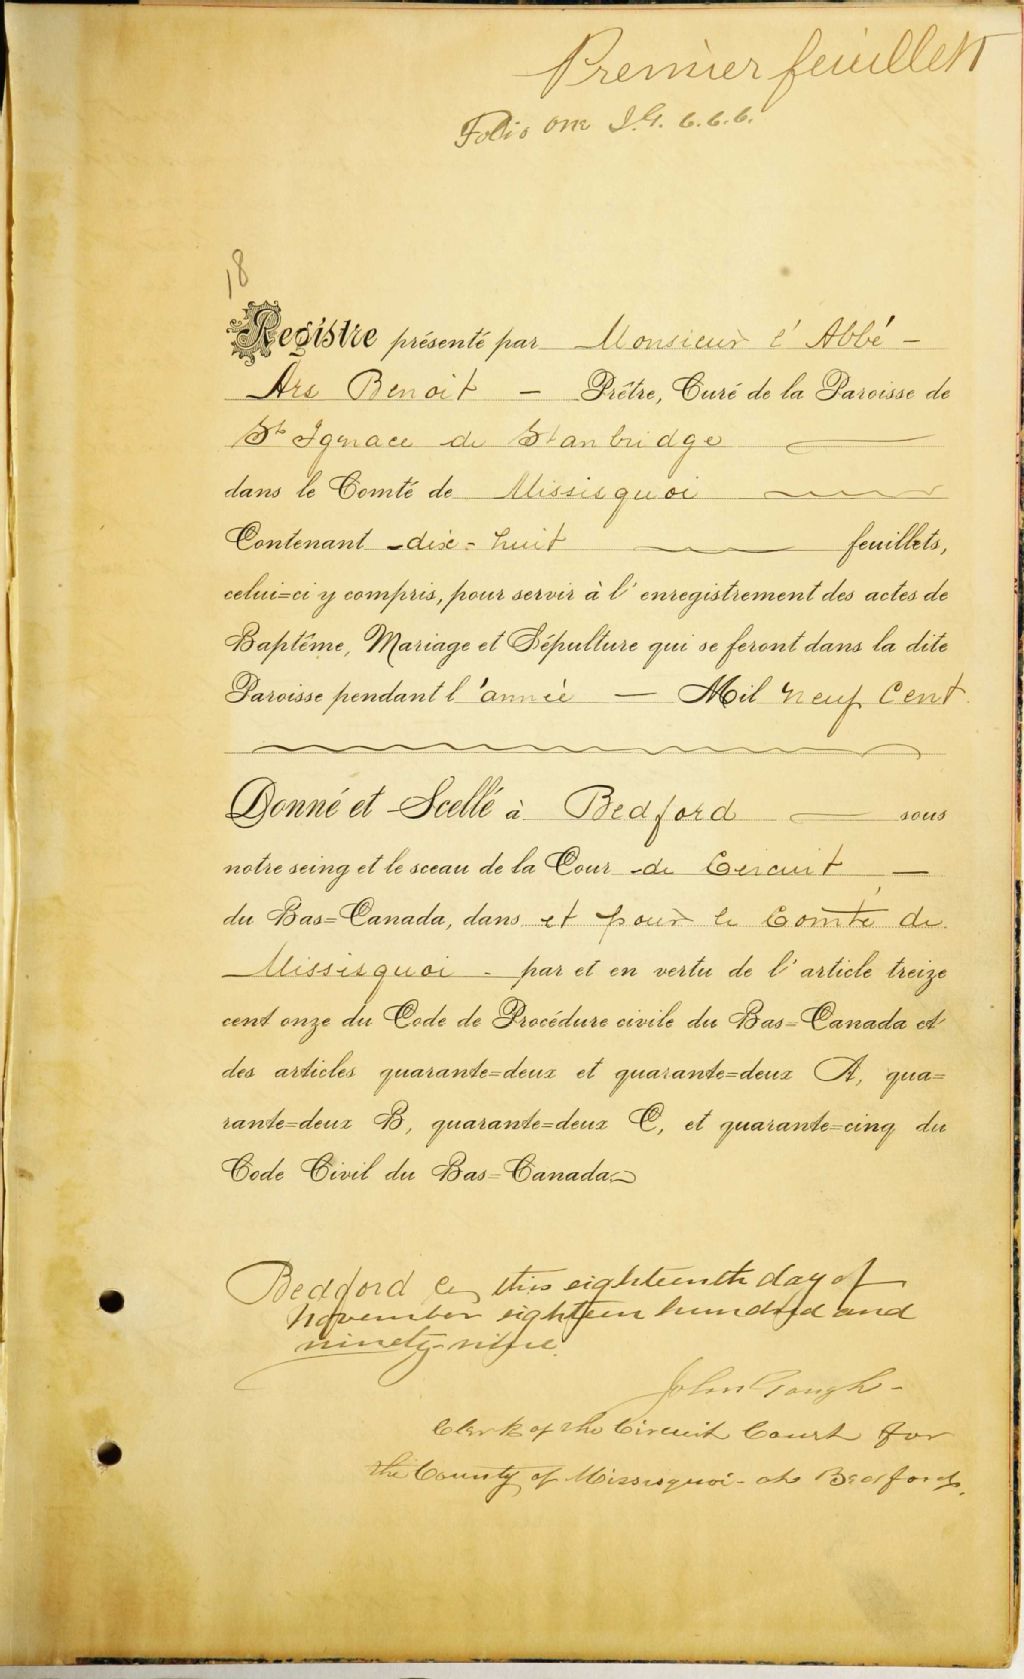 Premier feuillet
Folio one J.G. C.C.C.
18
Registre présenté par Monsieur l'Abbé -
Ars Benoit - Prêtre, Curé de la Paroisse de
St Ignace de Stanbridge
dans le Comté de Missisquoi
Contenant dix-huit feuillets,
celui=ci y compris, pour servir à l'enregistrement des actes de
Baptême, Mariage et Sépulture qui se feront dans la dite
Paroisse pendant l'année - Mil neuf Cent
Donné et Scellé à Bedford sous
notre seing et le sceau de la Cour de Circuit -
du Bas=Canada, dans et pour le Comté de
Missisquoi - par et en vertu de l'article treize
cent onze du Code de Procédure civile du Bas=Canada et
des articles quarante=deux et quarante=deux A, qua=
rante=deux B, quarante=deux C, et quarante=cinq du
Code Civil du Bas=Canada.
Bedford ce this eighteenth day of
November eighteen hundred and
ninety-nine.
John Gough -
Clerk of the Circuit Court for
the County of Missisquoi - at Bedford.